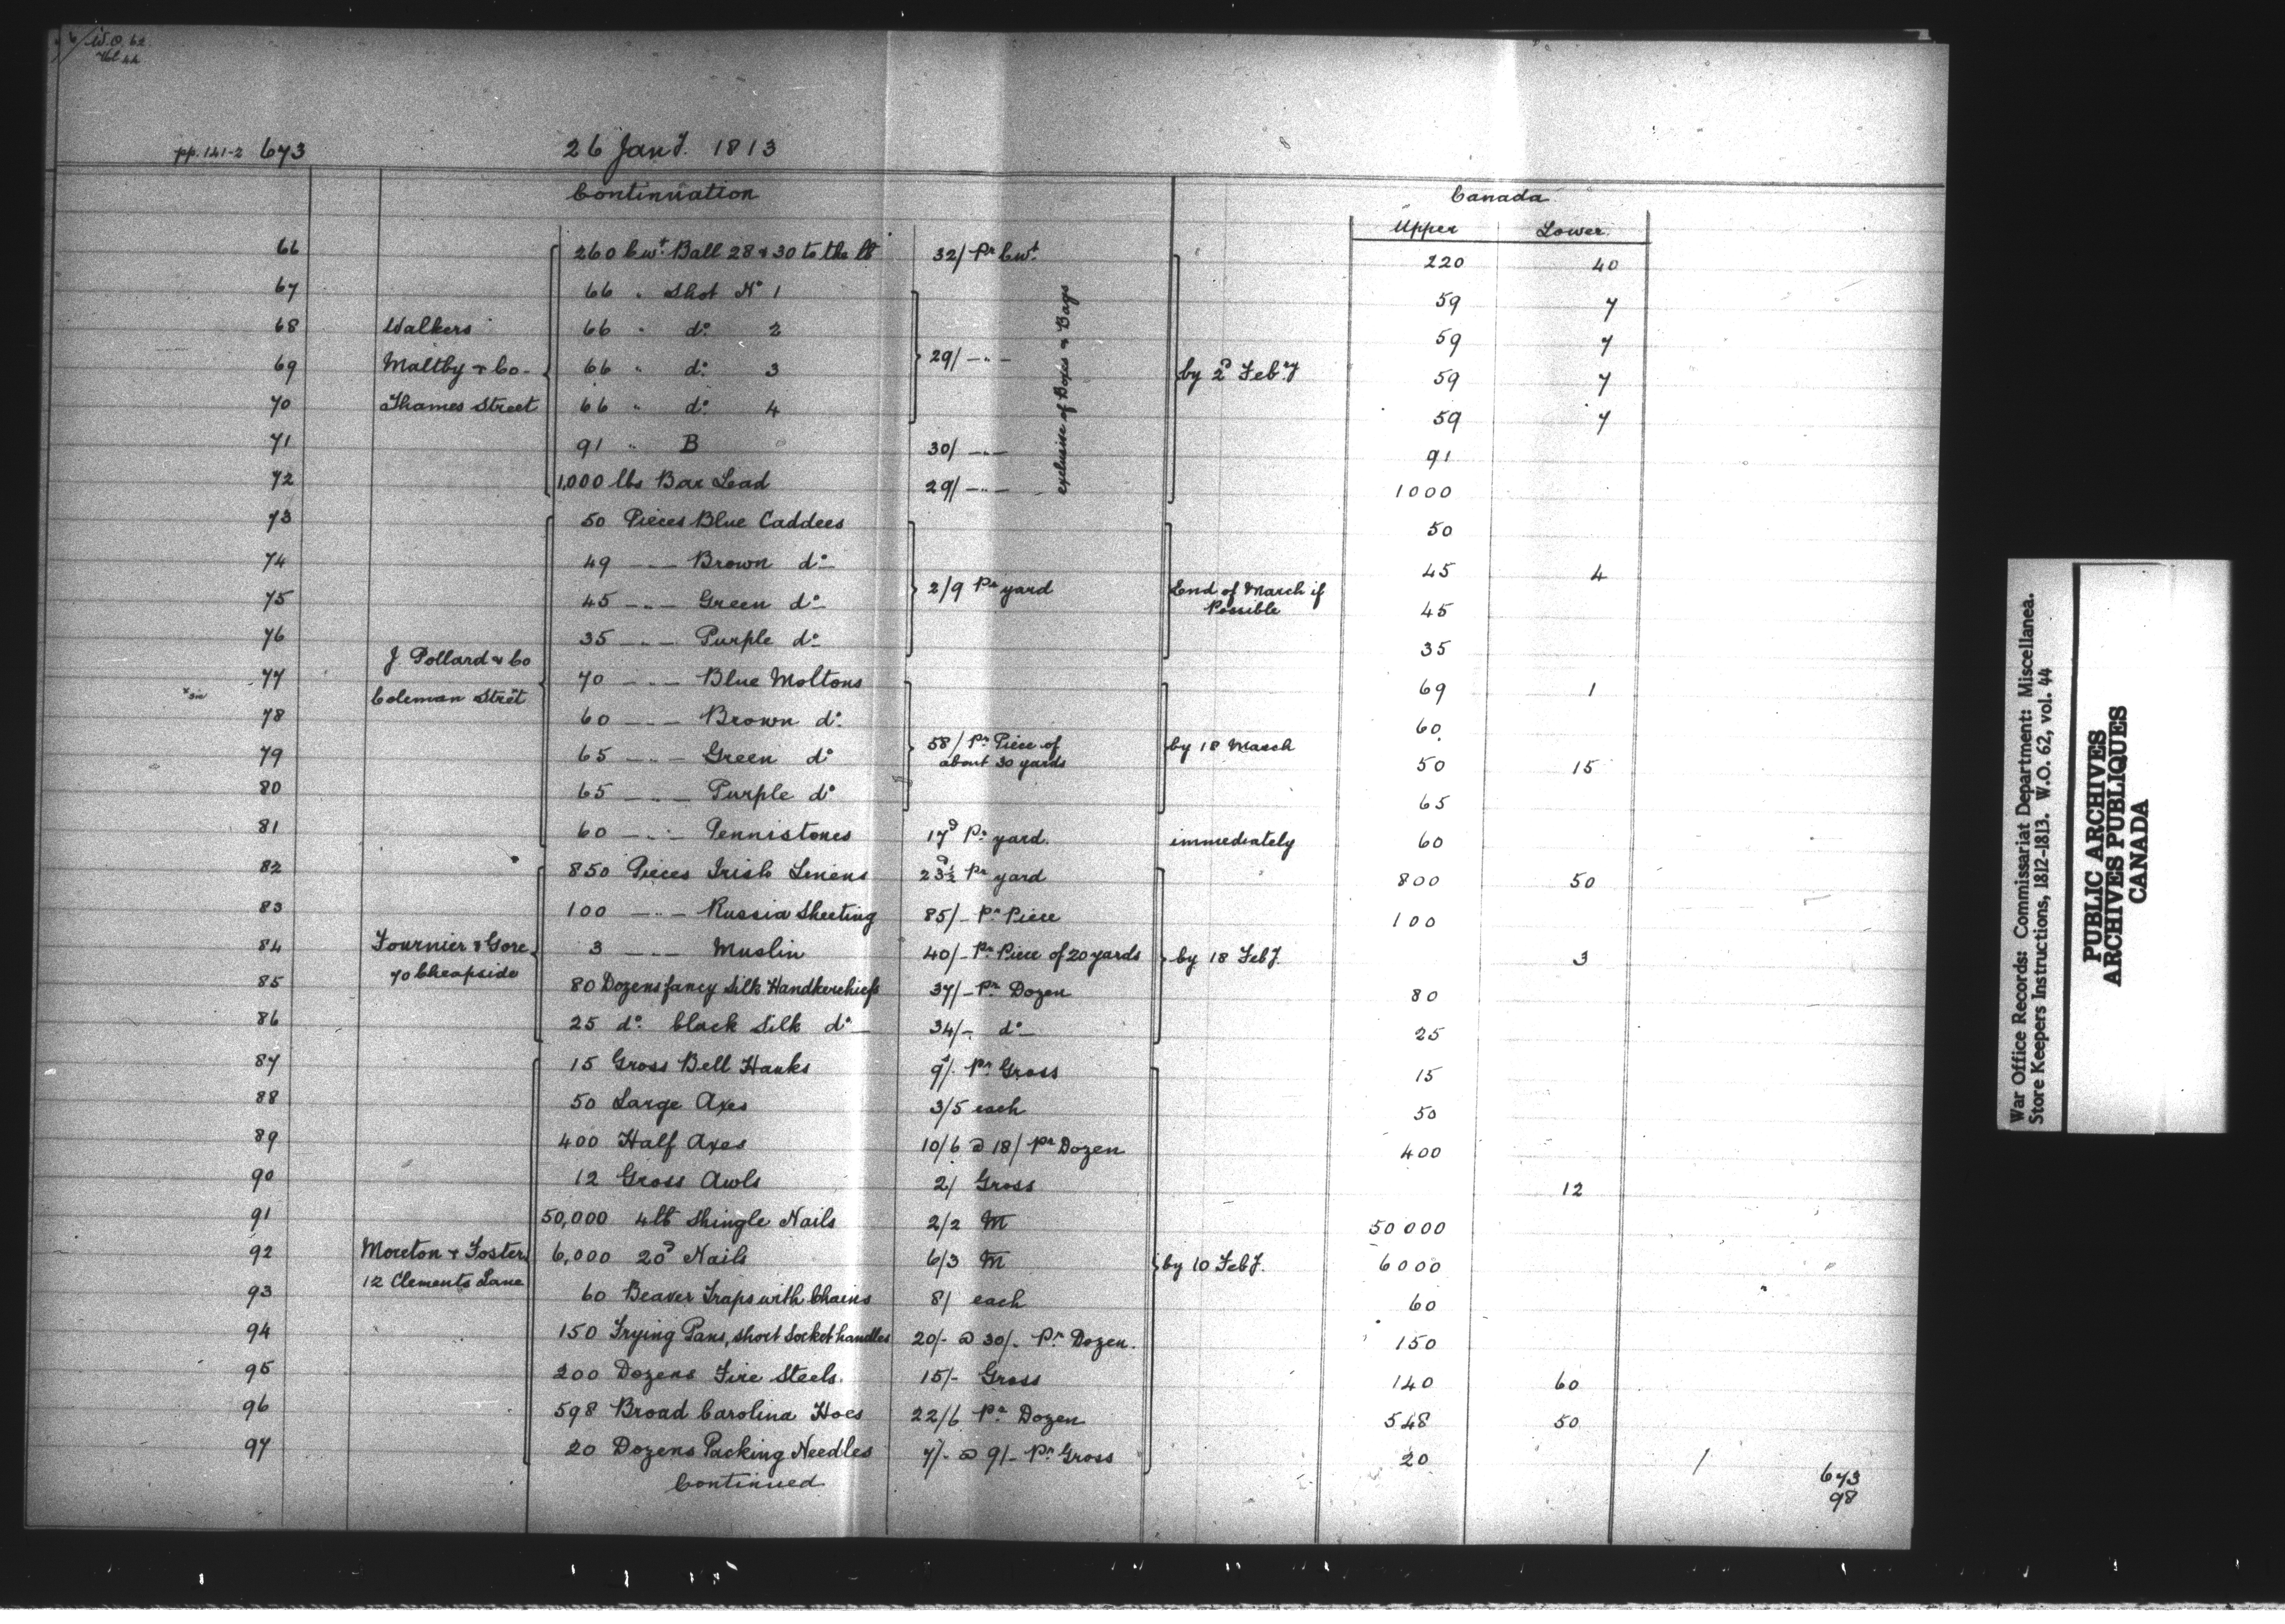 W.O. 62
Vol 44
pp. 141-2 673 26 Jany. 1813
Continuation Canada
Upper Lower
66 260 Cwt. Ball 28 & 30 to the lb 32/ Pr Cwt. 220 40
67 66 " Shot No 1 59 7
68 Walkers 66 " do. 2 59 7
69 Maltby & Co - 66 " do. 3 29/ — " — exclusive of Boxes & Bags by 2d Febry 59 7
70 Thames Street 66 " do. 4 59 7
71 91 " B 30/ — " — 91
72 1,000 lbs Bar Lead 29/ — " — 1000
73 50 Pieces Blue Caddees 50
74 49 — " — Brown do — 45 4
75 45 — " — Green do — 2/9 Pr yard End of March if Possible 45
76 35 — " — Purple do — 35
J. Pollard & Co
77 70 — " — Blue Moltons 69 1
x sic Coleman Stret
78 60 — " — Brown do. 60
79 65 — " — Green do 58/ Pr Piece of about 30 yards by 18 March 50 15
80 65 — " — Purple do 65
81 60 — " — Pennistones 17d Pr yard. immediately 60
82 850 Pieces Irish Linens 23½d Pr yard 800 50
83 100 — " — Russia Sheeting 85/- Pr Piece 100
84 Fournier & Gore 3 — " — Muslin 40/- Pr Piece of 20 yards by 18 Feby. 3
70 Cheapside
85 80 Dozens fancy Silk Handkerchiefs 37/- Pr Dozen 80
86 25 do. black Silk do — 34/- do — 25
87 15 Gross Bell Hauks 9/. Pr Gross 15
88 50 Large Axes 3/5 each 50
89 400 Half Axes 10/6 @ 18/ Pr Dozen 400
90 12 Gross Awls 2/ Gross 12
91 50,000 4lb Shingle Nails 2/2 M 50000
92 Moreton & Foster 6,000 20d Nails 6/3 M by 10 Feby. 6000
12 Clements Lane
93 60 Beaver Traps with Chains 8/ each 60
94 150 Frying Pans, short Socket handles 20/- @ 30/- Pr Dozen. 150
95 200 Dozens Fire Steels. 15/- Gross 140 60
96 598 Broad Carolina Hoes 22/6 Pr Dozen 548 50
97 20 Dozens Packing Needles 7/- @ 9/- Pr Gross 20
Continued
673
98
War Office Records: Commissariat Department: Miscellanea.
Store Keepers Instructions, 1812-1813. W.O. 62, vol. 44
PUBLIC ARCHIVES
ARCHIVES PUBLIQUES
CANADA